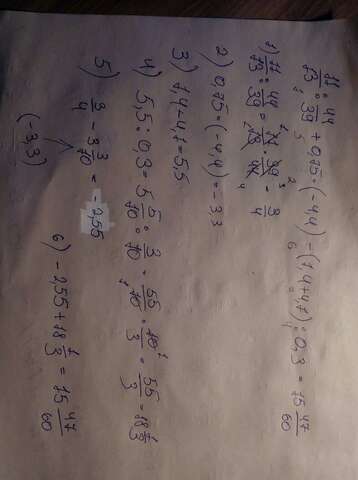 11/13 : 44/39 + 0,75 · (-4,4) - (1,4+4,1) : 0,3 = 15 47/60
1) 11/13 : 44/39 = 11/13 · 39/44 = 3/4
2) 0,75 · (-4,4) = -3,3
3) 1,4+4,1=5,5
4) 5,5 : 0,3 = 5 5/10 : 3/10 = 55/10 · 10/3 = 55/3 = 18 1/3
5) 3/4 - 3 3/10 = -2,55
(-3,3)
6) -2,55+18 1/3 = 15 47/60